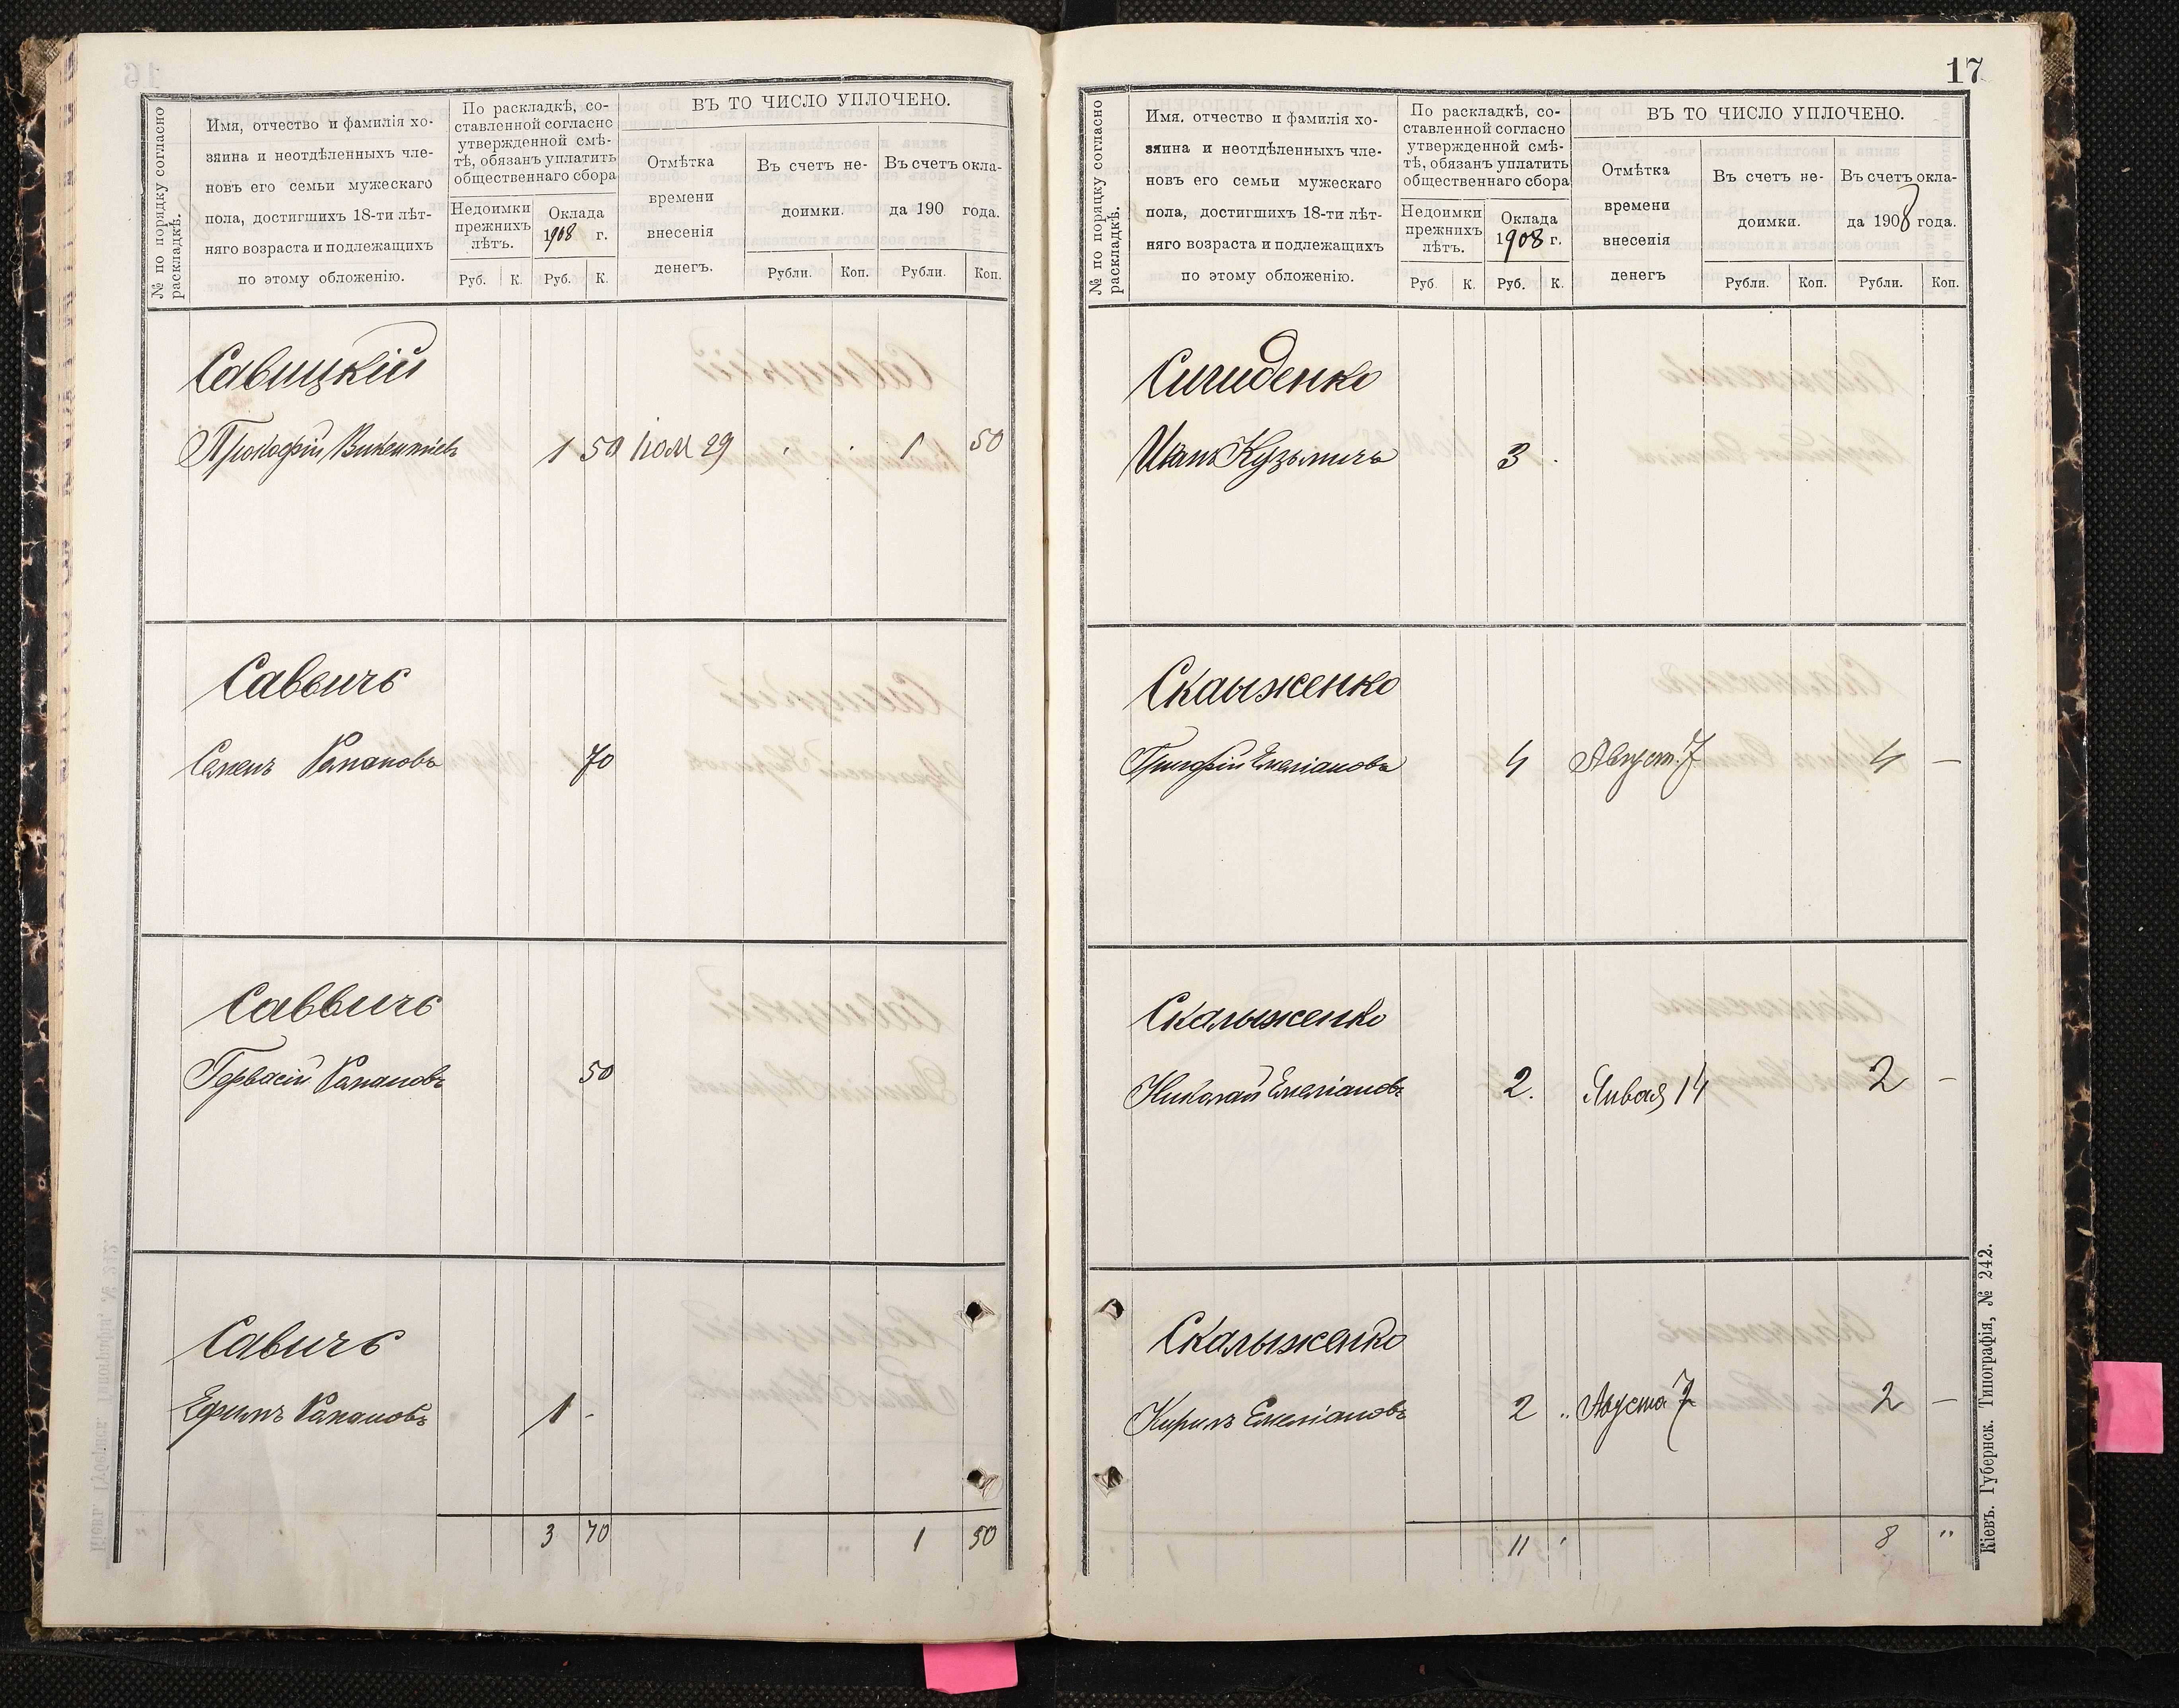 № по порядку согласно
раскладкѣ.
Имя, отчество и фамилія хо-
зяина и неотдѣленныхъ чле-
новъ его семьи мужескаго
пола, достигшихъ 18-ти лѣт-
няго возраста и подлежащихъ
по этому обложенію.
По раскладкѣ, со-
ставленной согласно
утвержденной смѣ-
тѣ, обязанъ уплатить
общественнаго сбора
Недоимки
прежнихъ
лѣтъ.
Оклада
1908 г.
ВЪ ТО ЧИСЛО УПЛОЧЕНО.
Отмѣтка
времени
внесенія
денегъ.
Въ счетъ не-
доимки.
Въ счетъ окла-
да 190 года.
Руб. К. Руб. К. Рубли. Коп. Рубли. Коп.
Савицкій
Прокофій Викентіевъ 1 50 29 1 50
Саввичъ
Семенъ 70
Саввичъ
Гервасій 50
Савичъ
Ефимъ 1 -
3 70 1 50
17
№ по порядку согласно
раскладкѣ.
Имя. отчество и фамилія хо-
зяина и неотдѣленныхъ чле-
новъ его семьи мужескаго
пола, достигшихъ 18-ти лѣт-
няго возраста и подлежащихъ
по этому обложенію.
По раскладкѣ, со-
ставленной согласно
утвержденной смѣ-
тѣ, обязанъ уплатить
общественнаго сбора
Недоимки
прежнихъ
лѣтъ.
Оклада
1908 г.
ВЪ ТО ЧИСЛО УПЛОЧЕНО.
Отмѣтка
времени
внесенія
денегъ
Въ счетъ не-
доимки.
Въ счетъ окла-
да 1908 года.
Руб. К. Руб. К. Рубли. Коп. Рубли. Коп.
Сигиденко
Иванъ Кузьмичъ 3
Скалыженко
Емеліановъ 4 Август. 7 4 —
Скалыженко
Николай Емеліановъ 2. Января 14 2 -
Скалыженко
Кирилъ Емеліановъ 2 „ Августа 7 2 —
11 8 „
Кіевъ. Губернск. Типографія, № 242.